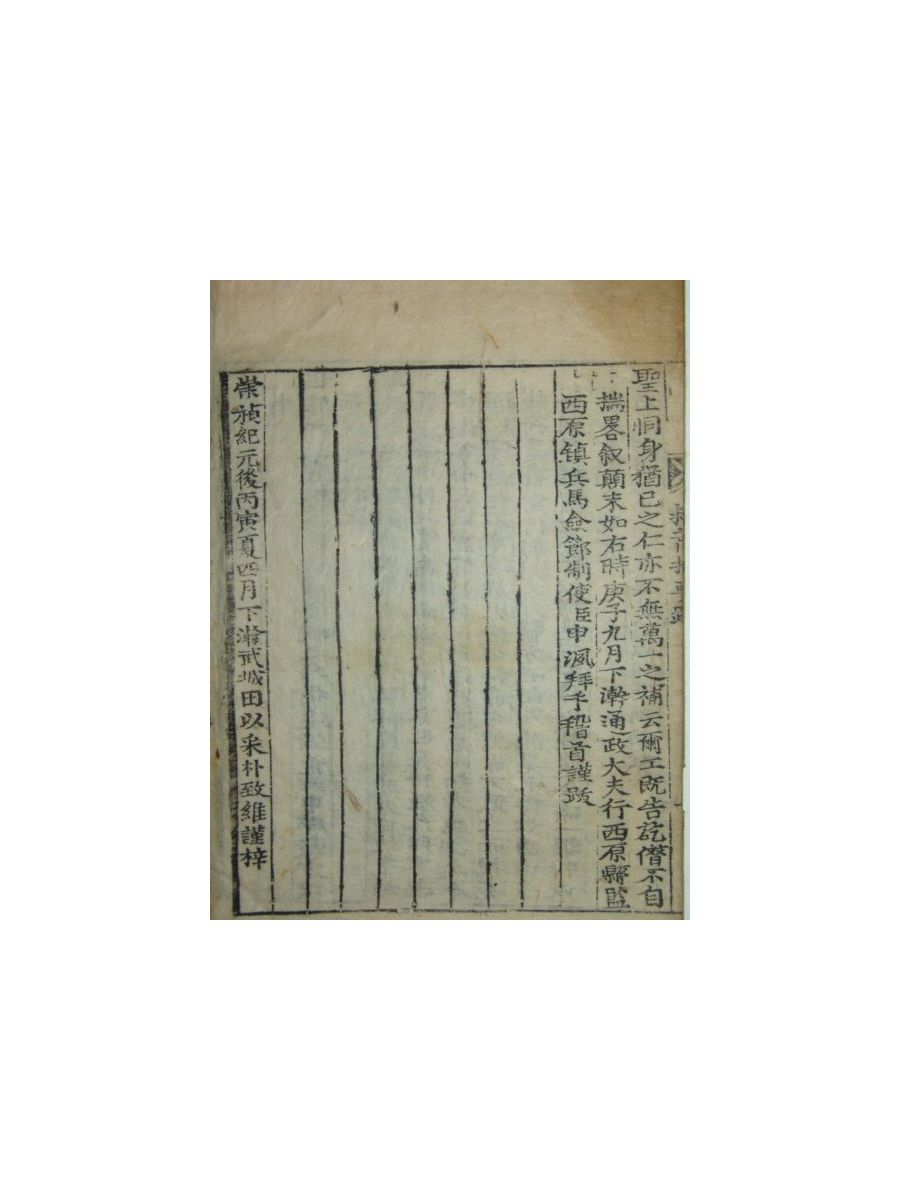 聖上恫身猶己之仁亦不無萬一之補云爾工既告訖僭不自
揣畧叙顛末如右時庚子九月下澣通政大夫行西原縣監
西原鎮兵馬僉節制使臣申渢拜手稽首謹跋
崇禎紀元後丙寅夏四月下澣武城田以采朴致維謹梓